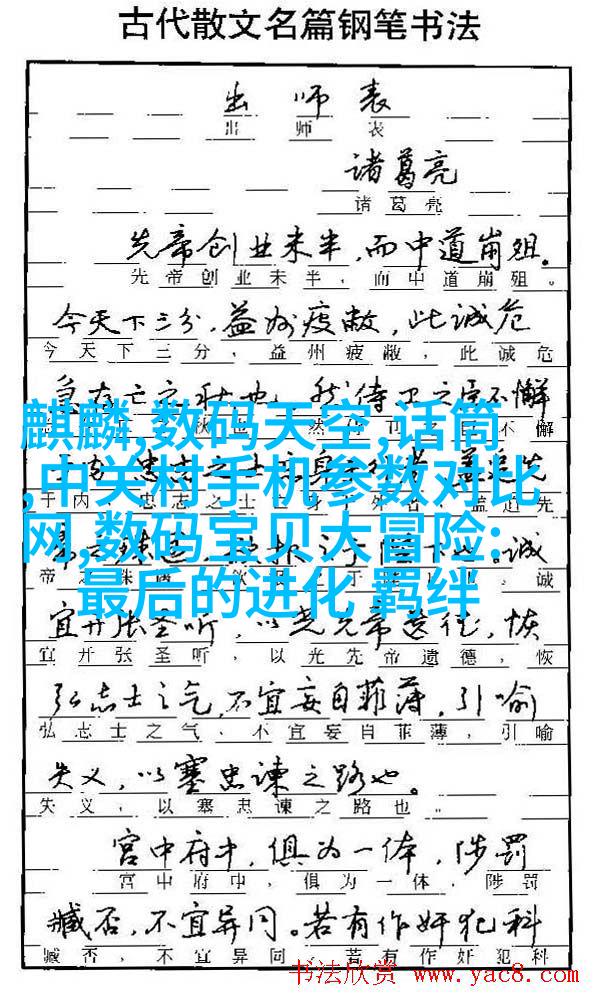 古代散文名篇钢笔书法
出师表
出师表
诸葛亮
诸葛亮
先帝创业未半,而中道崩殂。
先帝创业未半,而中道崩殂。
今天下三分,益州疲敝,此诚危
今天下三分,益州疲敝,此诚危
急存亡之秋也。然侍卫之臣不懈
麒麟,数码天空,话筒
,中关村手机参数对比
网,数码宝贝大冒险:
最后的进化 羁绊
于内 忠志之士 身于外者 盖追先
诚
帝 殊遇 诚
宜开张圣听,以光先帝遗德,恢
宜开张圣听,以光先帝遗德,恢
弘志士之气,不宜妄自菲薄,引喻
弘志士之气,不宜妄自菲薄,引喻
失义,以塞忠谏之路也。
失义,以塞忠谏之路也。
宫中府中,俱为一体,陟罚
宫中府中,俱为一体,陟罚
臧否,不宜异同。若有作奸犯科
臧否,不宜异同。若有作奸犯科
书法欣赏 www.yac8.com